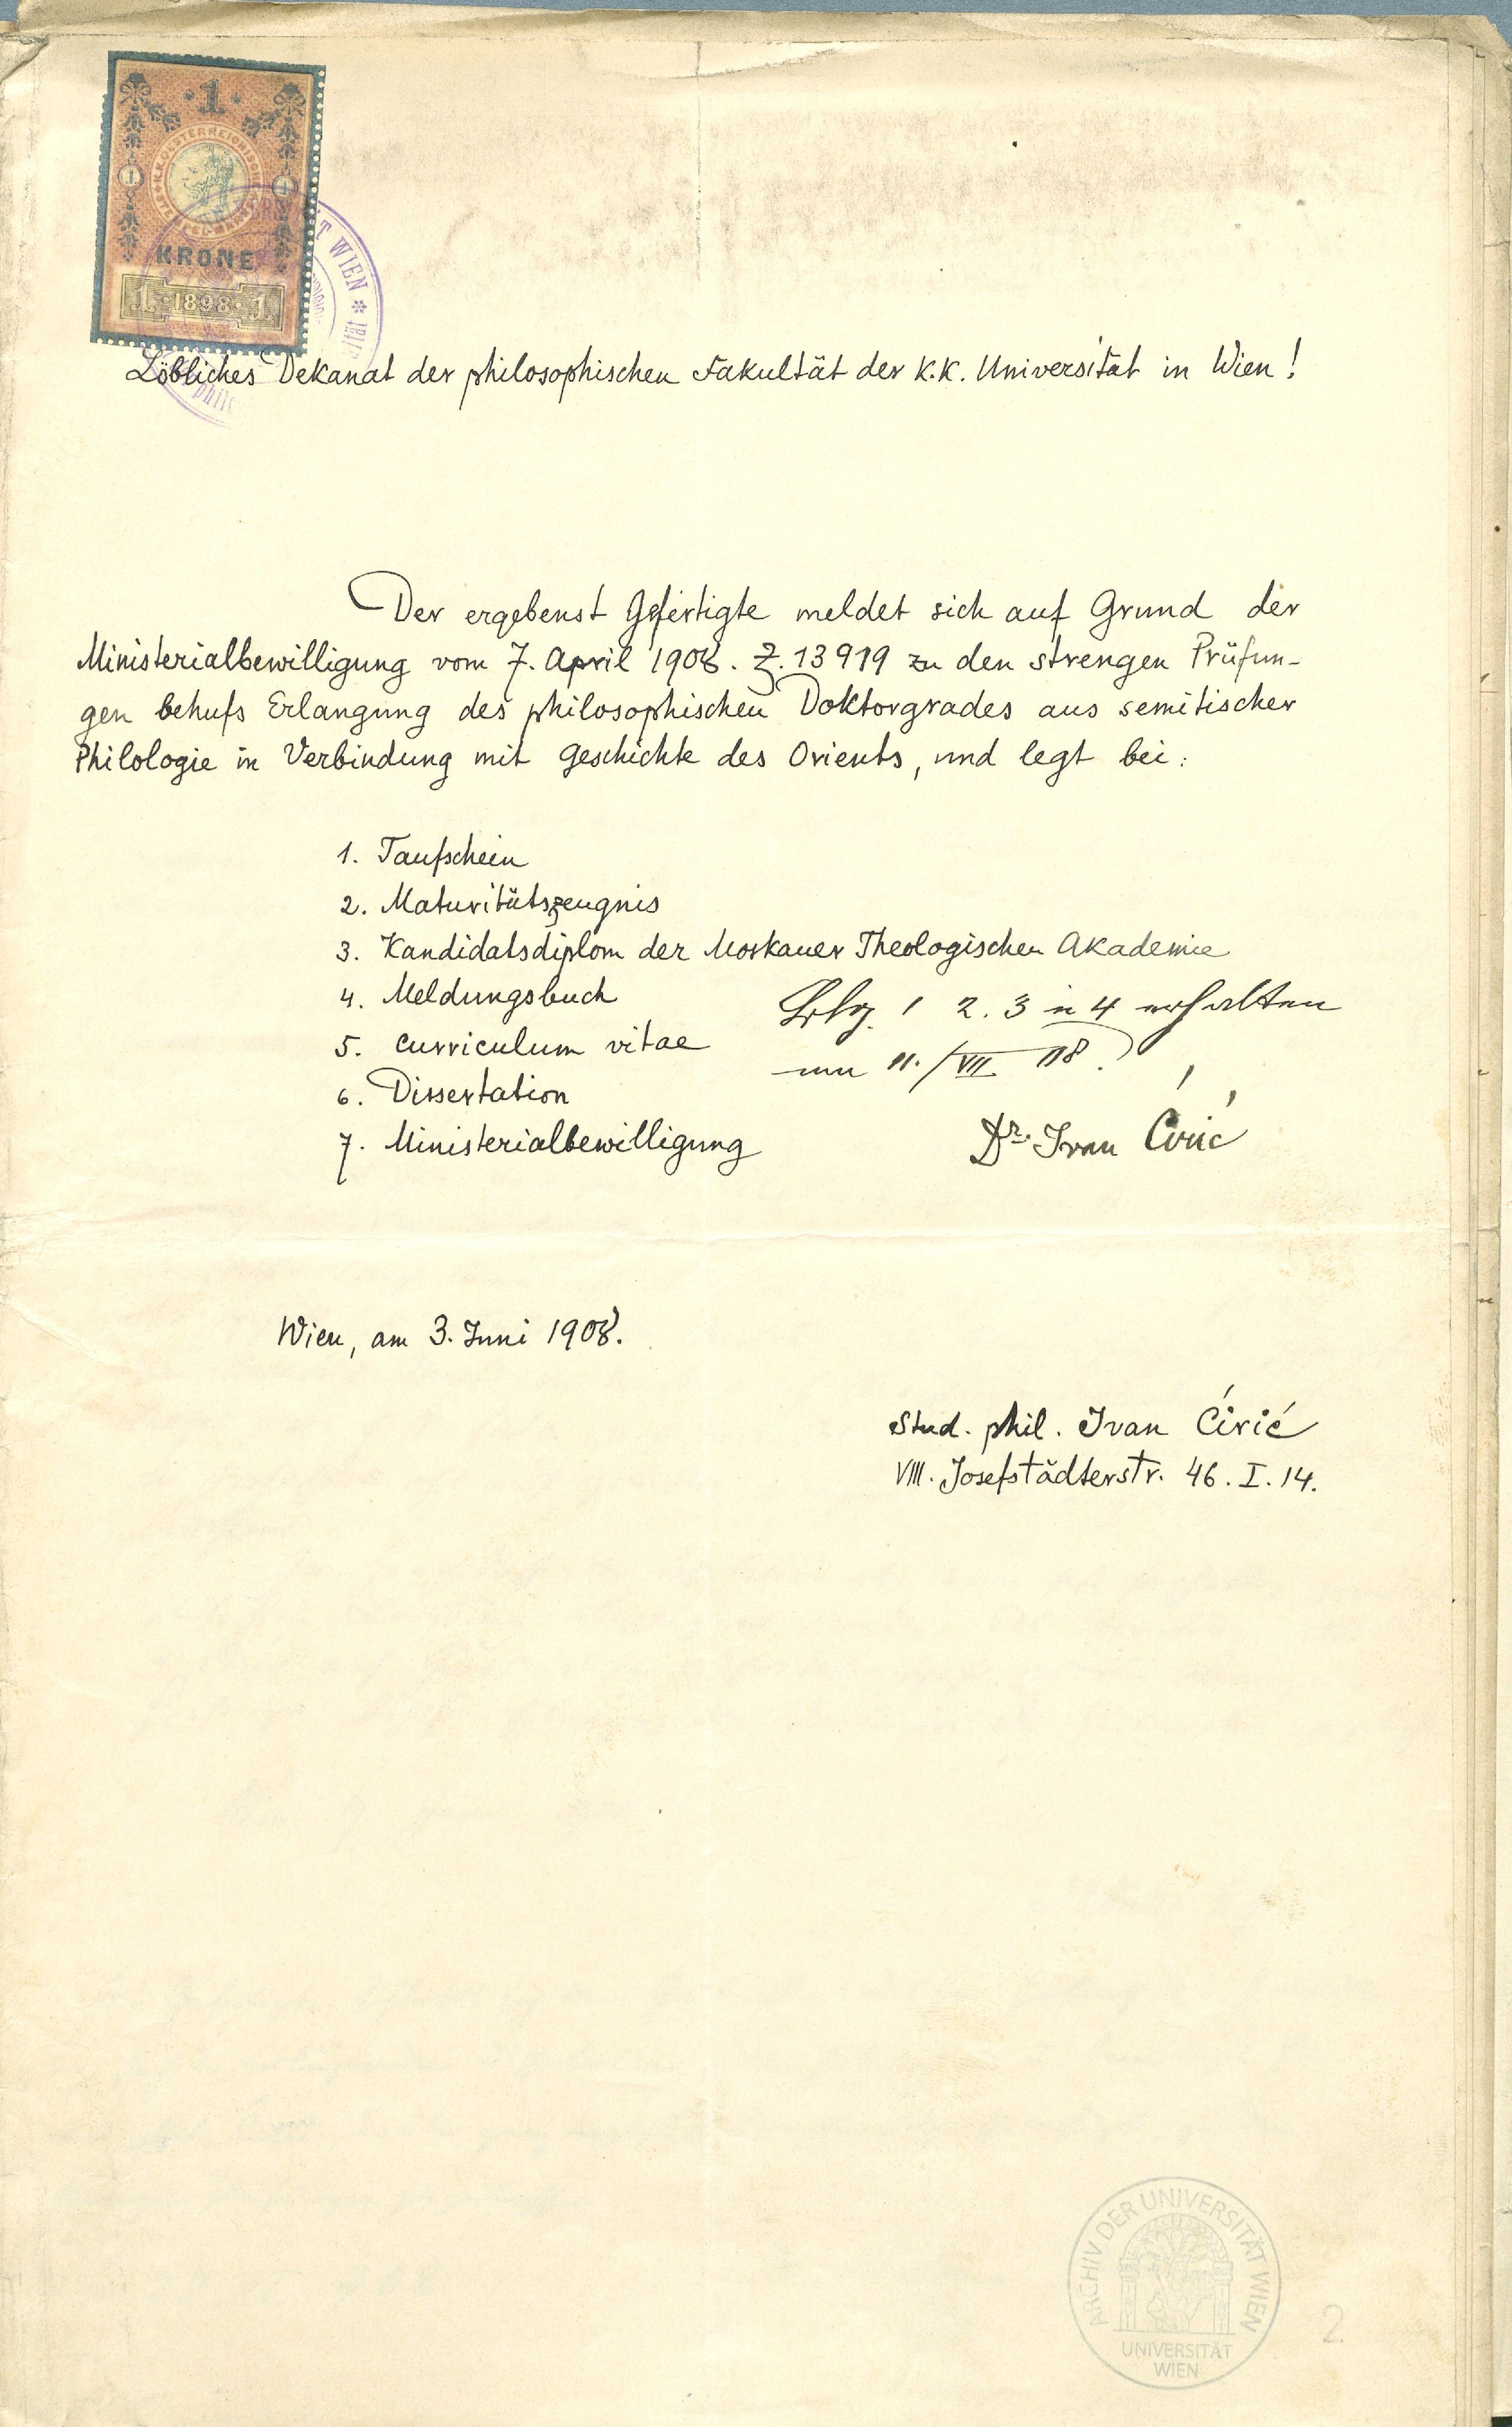 1
K.K. OESTERREICHISCHE STEMPEL-MARKE
1 1
KRONE
1 · 1898 · 1
WIEN
Löbliches Dekanat der philosophischen Fakultät der K.K. Universität in Wien!
Der ergebenst Gefertigte meldet sich auf Grund der
Ministerialbewilligung vom 7. April 1908. Z. 13919 zu den strengen Prüfun-
gen behufs Erlangung des philosophischen Doktorgrades aus semitischer
Philologie in Verbindung mit Geschichte des Orients, und legt bei:
1. Taufschein
2. Maturitätszeugnis
3. Kandidatsdiplom der Moskauer Theologischen Akademie
4. Meldungsbuch
1 2. 3 u 4 erhalten
5. Curriculum vitae
11./VII
6. Dissertation
7. Ministerialbewilligung
Dr. Ivan Ćirić
Wien, am 3. Juni 1908.
Stud. phil. Ivan Ćirić
VIII. Josefstädterstr. 46. I. 14.
ARCHIV DER UNIVERSITÄT WIEN
UNIVERSITÄT
WIEN
2